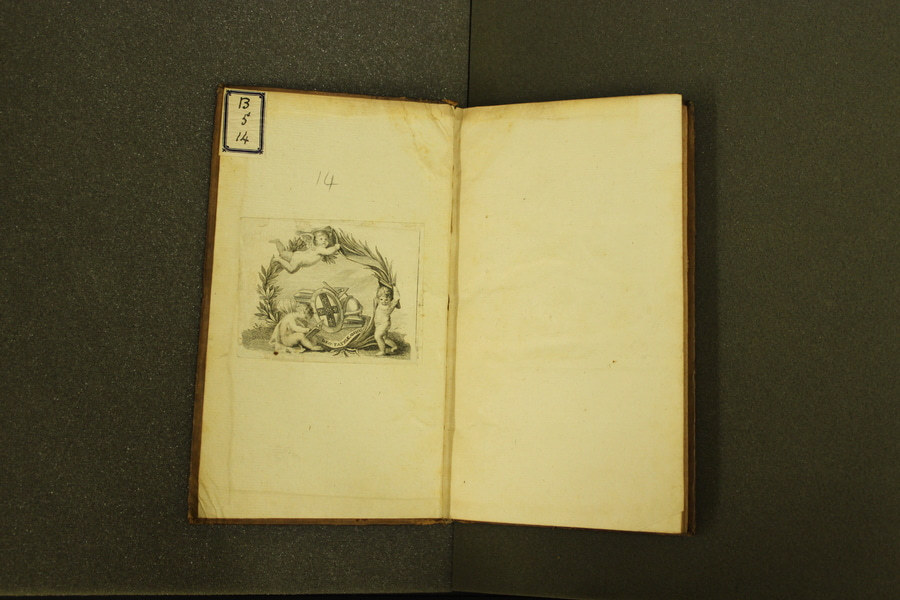 B
5
14
14